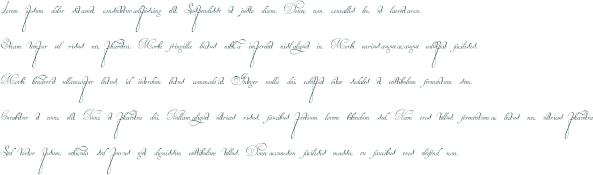 Lorem ipsum dolor sit amet, consectetur adipiscing elit. Suspendisse et justo diam. Donec non convallis leo, id laoreet eros.
Etiam semper vel risus nec pharetra. Morbi fringilla luctus nibh a imperdiet nisl aliquet in. Morbi varius augue augue, volutpat facilisis.
Morbi hendrerit ullamcorper luctus, id interdum luctus commodo at. Integer nulla dui, volutpat vitae sodales et, vestibulum fermentum sem.
Curabitur at nunc elit. Nunc a pharetra dui. Nullam aliquet ultrices risus, faucibus pretium lorem bibendum sed. Nam eros tellus, fermentum ac luctus nec, ultrices pharetra
Sed tortor ipsum, vehicula sed purus eget, dignissim vestibulum tellus. Donec accumsan facilisis mattis, eu faucibus eros eleifend non.